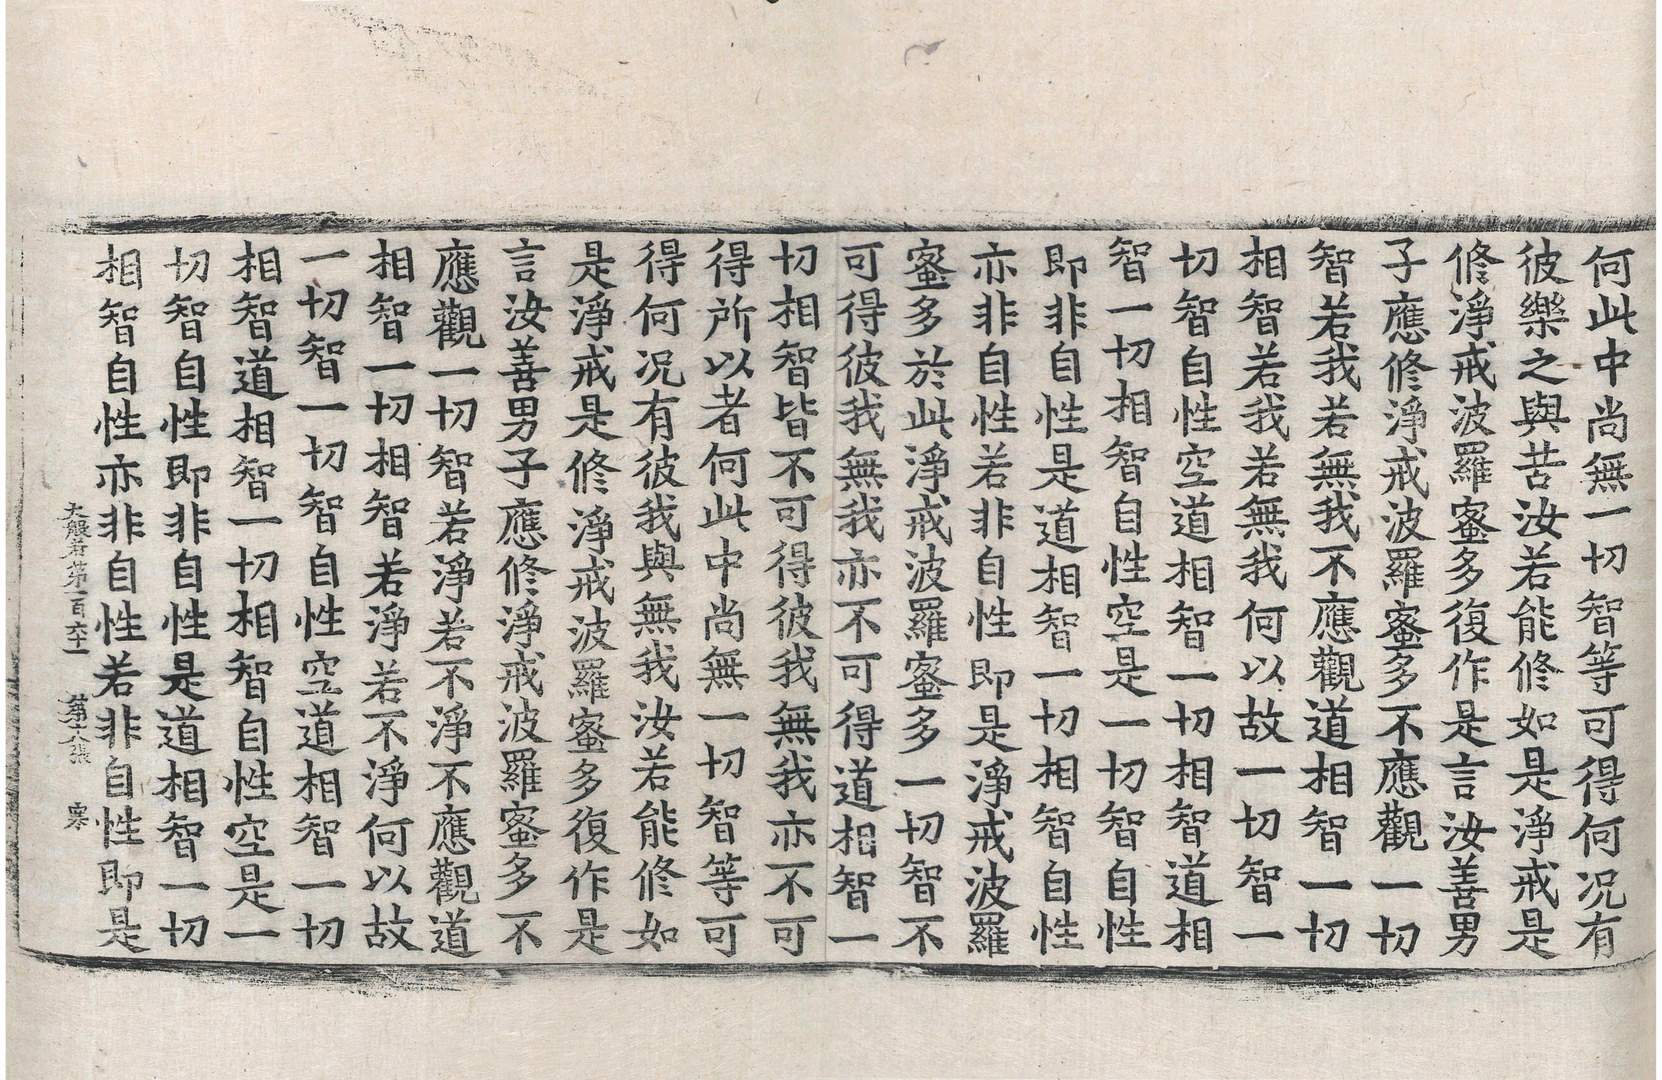 何此中尚無一切智等可得何况有
彼樂之與苦汝若能修如是淨戒是
修淨戒波羅蜜多復作是言汝善男
子應修淨戒波羅蜜多不應觀一切
智若我若無我不應觀道相智一切
相智若我若無我何以故一切智一
切智自性空道相智一切相智道相
智一切相智自性空是一切智自性
即非自性是道相智一切相智自性
亦非自性若非自性即是淨戒波羅
蜜多於此淨戒波羅蜜多一切智不
可得彼我無我亦不可得道相智一
切相智皆不可得彼我無我亦不可
得所以者何此中尚無一切智等可
得何况有彼我與無我汝若能修如
是淨戒是修淨戒波羅蜜多復作是
言汝善男子應修淨戒波羅蜜多不
應觀一切智若淨若不淨不應觀道
相智一切相智若淨若不淨何以故
一切智一切智自性空道相智一切
相智道相智一切相智自性空是一
切智自性即非自性是道相智一切
相智自性亦非自性若非自性即是
大般若第一百六十一 第六張 寒